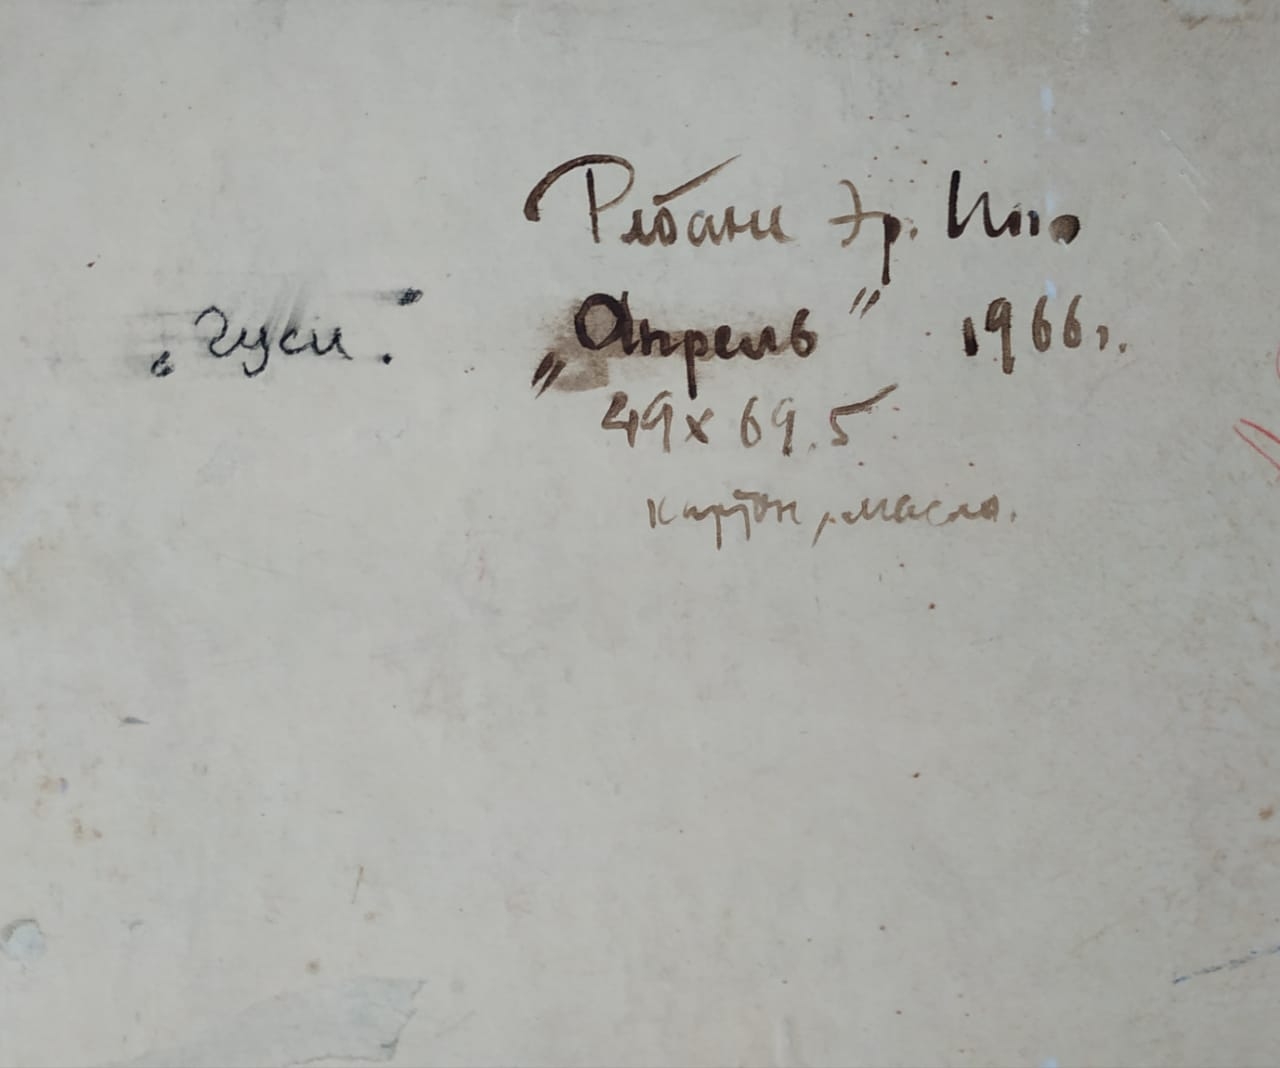 Эр.
„Гуси." „Апрель" 1966 г.
49 x 69.5
картон, масло.